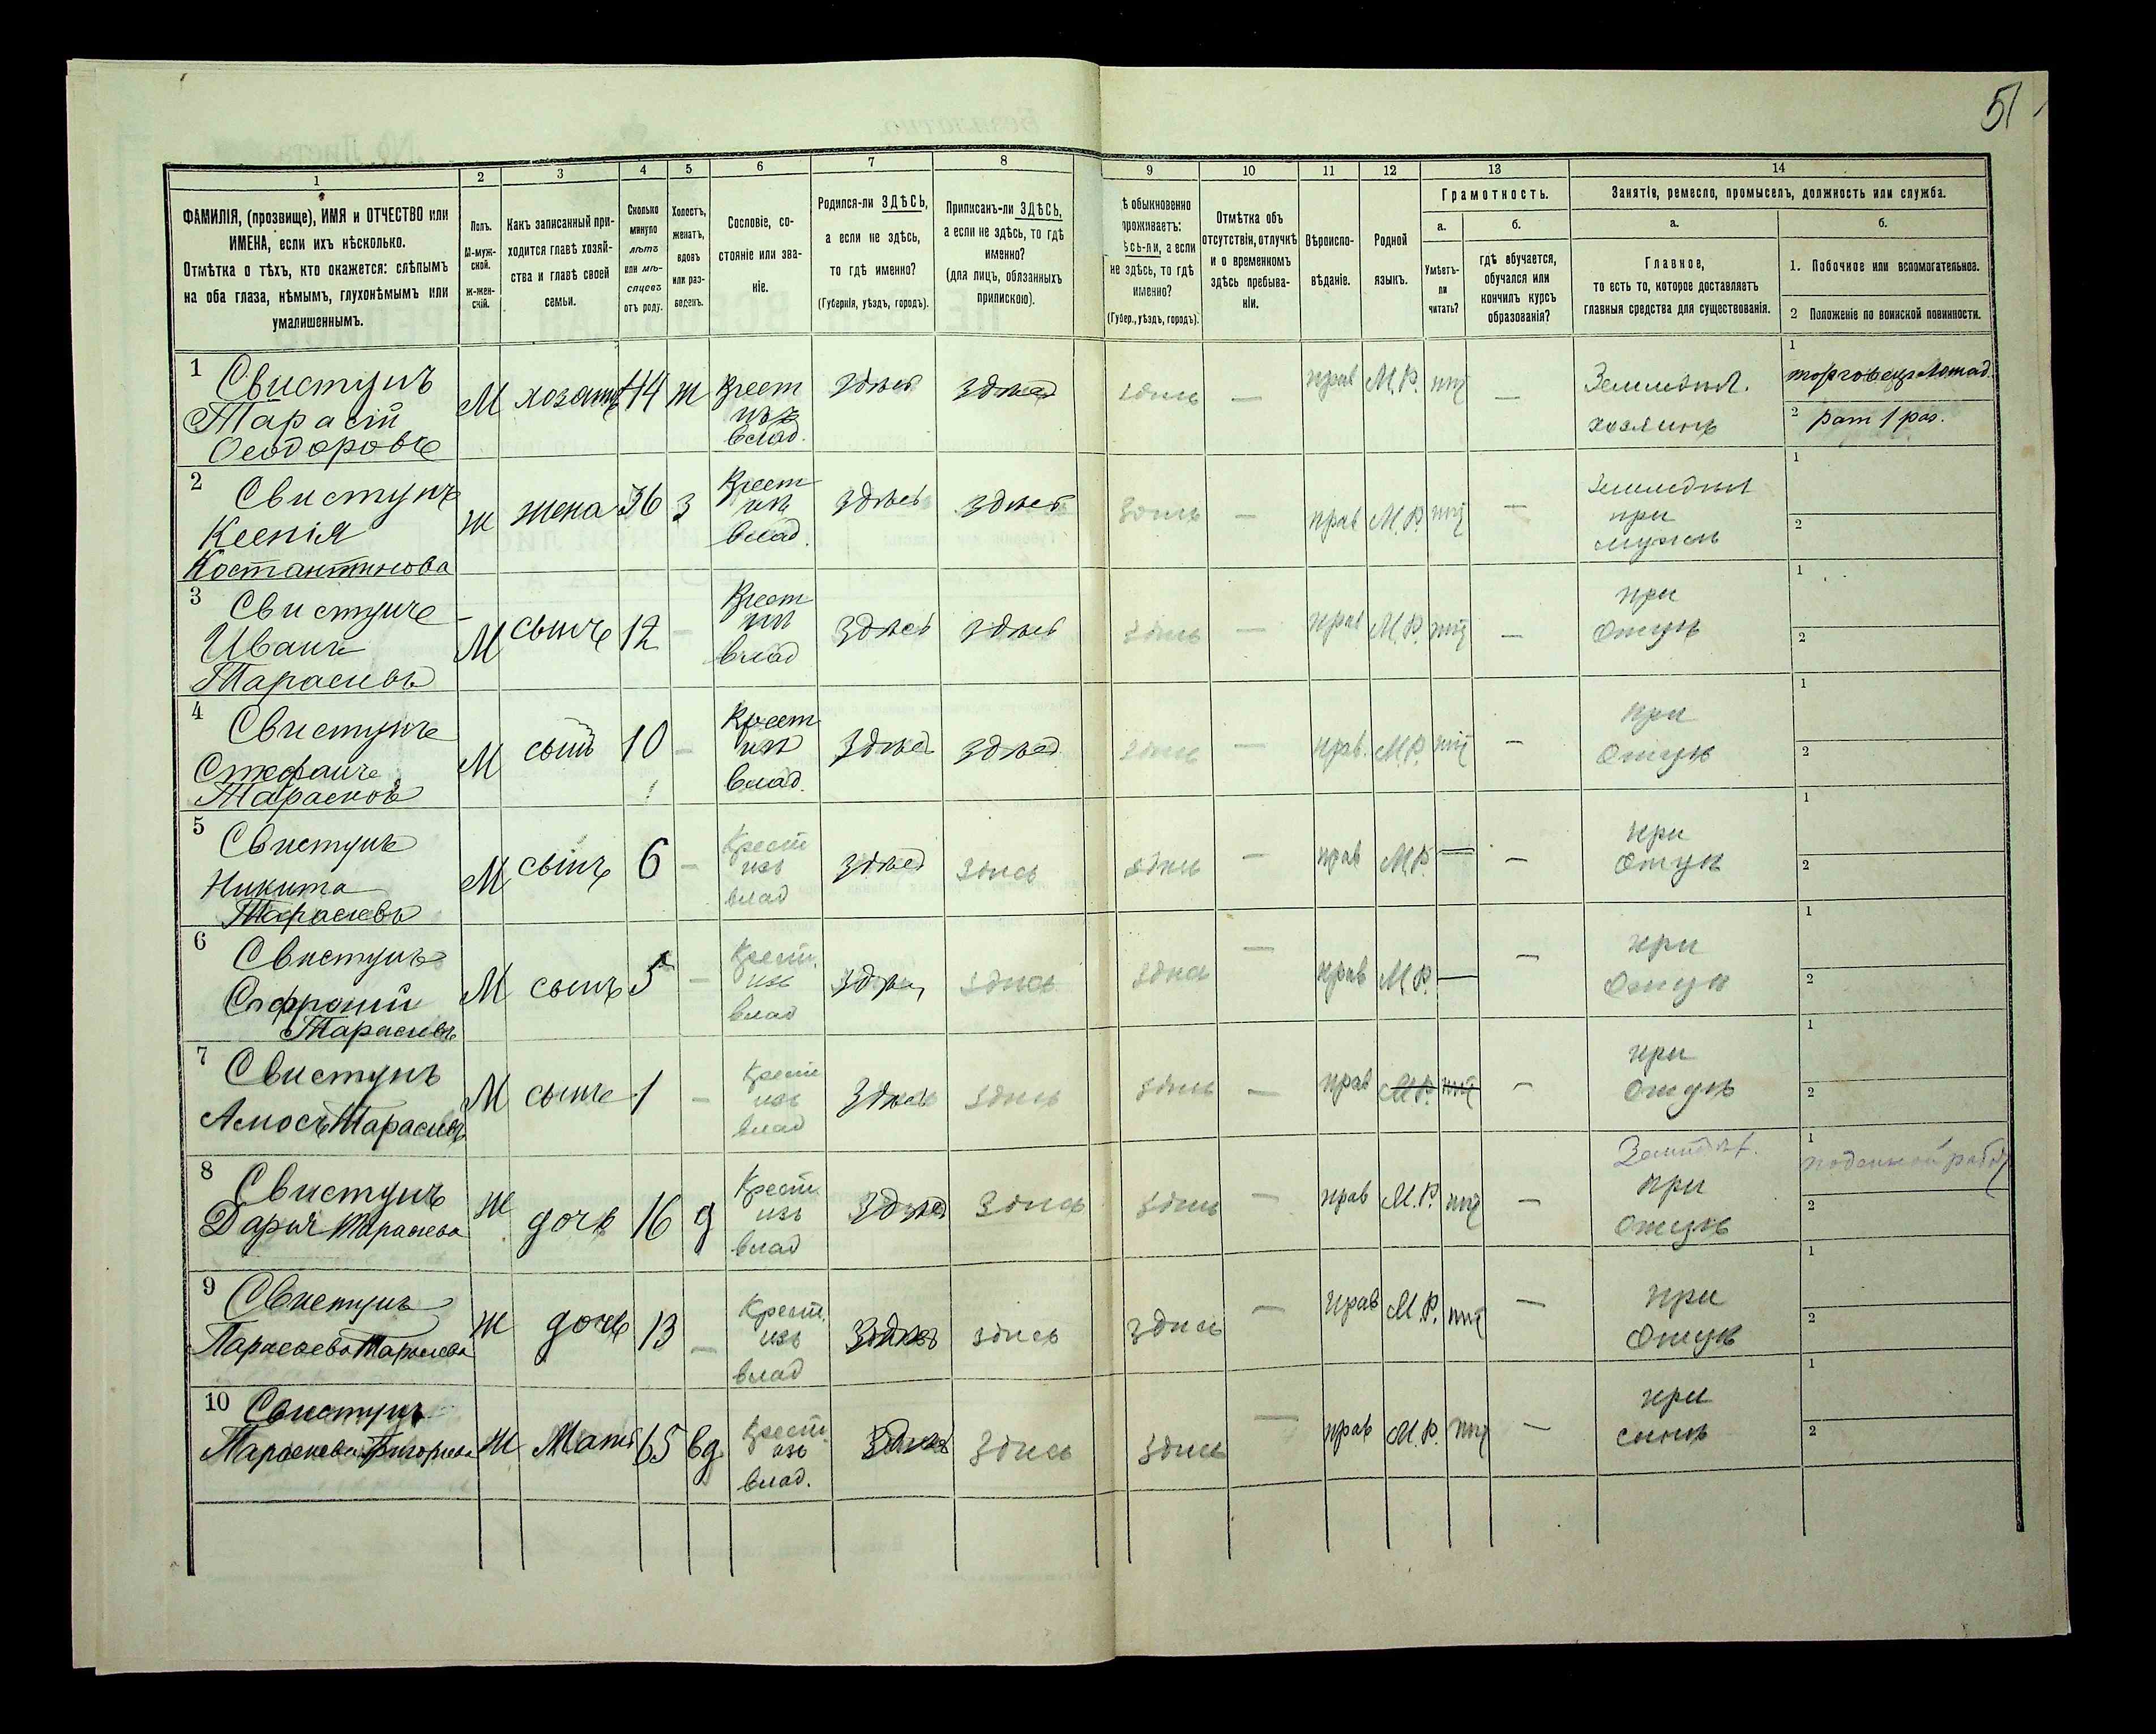 51
1 2 3 4 5 6 7 8 9 10 11 12 13 14
ФАМИЛІЯ, (прозвище), ИМЯ и ОТЧЕСТВО или
ИМЕНА, если ихъ нѣсколько.
Отмѣтка о тѣхъ, кто окажется: слѣпымъ
на оба глаза, нѣмымъ, глухонѣмымъ или
умалишеннымъ.
Полъ.
М-муж-
ской.
ж-жен-
скій.
Какъ записанный при-
ходится главѣ хозяй-
ства и главѣ своей
семьи.
Сколько
минуло
лѣтъ
или мѣ-
сяцевъ
отъ роду.
Холостъ,
женатъ,
вдовъ
или раз-
веденъ.
Сословіе, со-
стояніе или зва-
ніе.
Родился-ли ЗДѢСЬ,
а если не здѣсь,
то гдѣ именно?
(Губернія, уѣздъ, городъ).
Приписанъ-ли ЗДѢСЬ,
а если не здѣсь, то гдѣ
именно?
(для лицъ, обязанныхъ
припискою).
ѣ обыкновенно
проживаетъ:
ѣсь-ли, а если
не здѣсь, то гдѣ
именно?
(Губер., уѣздъ, городъ).
Отмѣтка объ
отсутствіи, отлучкѣ
и о временномъ
здѣсь пребыва-
ніи.
Вѣроиспо-
вѣданіе.
Родной
языкъ.
Грамотность.
а.
Умѣетъ-
ли
читать?
б.
гдѣ обучается,
обучался или
кончилъ курсъ
образованія?
Занятія, ремесло, промыселъ, должность или служба.
а.
Главное,
то есть то, которое доставляетъ
главныя средства для существованія.
б.
1. Побочное или вспомогательное.
2 Положеніе по воинской повинности.
1 Свистунъ
Тарасій
Ѳеодоровъ
М 44 ж Крест
изъ
влад. здѣсь здѣсь здѣсь — прав М.Р. — Земледѣл.
хозяинъ
1
2 рат 1 раз.
2 Свистунъ
Ксенія
Костантинова
ж жена 36 з Крест
изъ
влад. здѣсь здѣсь здѣсь — прав М.Р. — Земледѣл
при
мужѣ
1
2
3 Свистунъ
Иванъ
Тарасіевъ
М сынъ 12 — Крест
изъ
влад здѣсь здѣсь здѣсь — прав М.Р. — при
Отцѣ
1
2
4 Свистунъ
Стефанъ
М сынъ 10 — Крест
изъ
влад. здѣсь здѣсь здѣсь — прав. М.Р. — при
Отцѣ
1
2
5 Свистунъ
Никита
Тарасіевъ
М сынъ 6 — Крест
изъ
влад здѣсь здѣсь здѣсь — прав М.Р. — — при
Отцѣ
1
2
6 Свистунъ
Тарасіевъ
М сынъ 5 — Крест.
изъ
влад здѣсь здѣсь здѣсь — прав М.Р. — — при
Отцѣ
1
2
7 Свистунъ
Амосъ Тарасіевъ
М сынъ 1 — Крест
изъ
влад здѣсь здѣсь здѣсь — прав М.Р. — при
Отцѣ
1
2
8 Свистунъ
Дарья Тарасіева
ж дочь 16 д Крест
изъ
влад здѣсь здѣсь здѣсь — прав М.Р. — Земледѣл.
при
Отцѣ
1
2
9 Свистунъ
Параскева Тарасіева
ж дочь 13 — Крест.
изъ
влад здѣсь здѣсь здѣсь — прав М.Р. — при
Отцѣ
1
2
10 Свистунъ
Параскева Григорьева
ж Мать 65 вд Крест.
изъ
влад. здѣсь здѣсь здѣсь — прав М.Р. — при
сынѣ
1
2